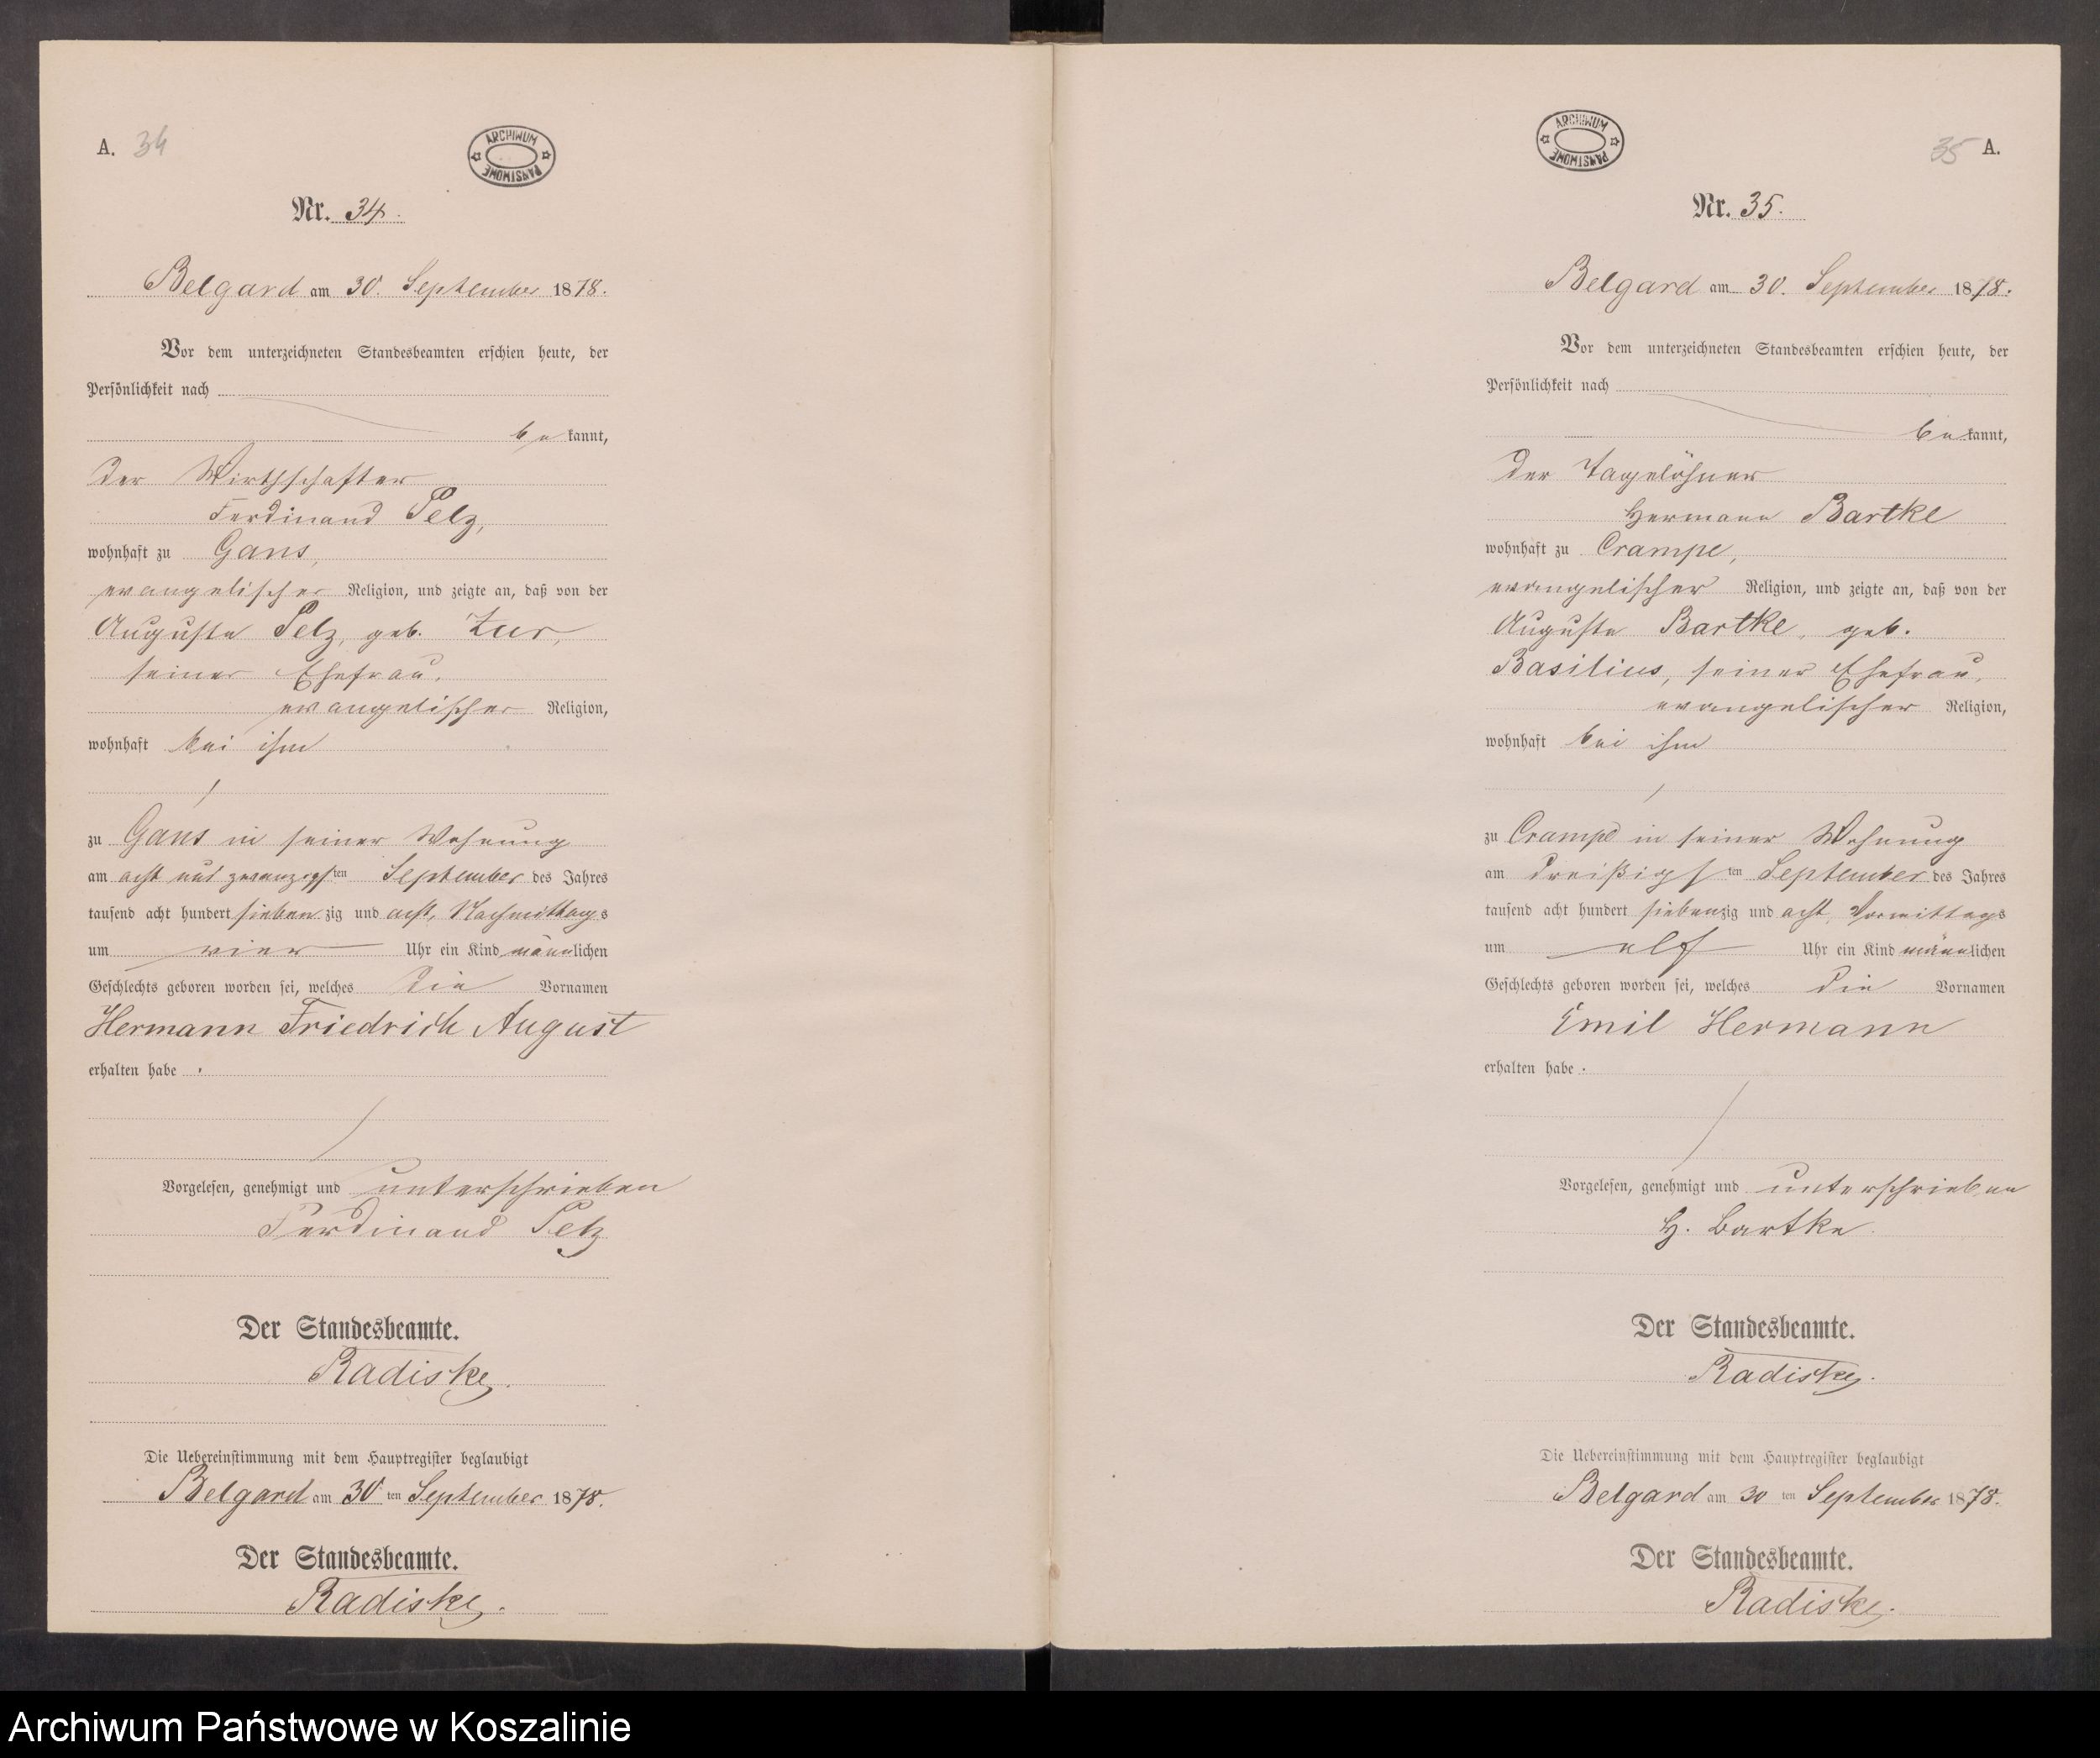 A. 34
ARCHIWUM PAŃSTWOWE
Nr. 34.
Belgard am 30. September 1878.
Vor dem unterzeichneten Standesbeamten erschien heute, der
Persönlichkeit nach
bekannt,
der Wirthschafter
Ferdinand Pelz,
wohnhaft zu Gans,
evangelischer Religion, und zeigte an, daß von der
Auguste Pelz, geb. Zur,
seiner Ehefrau,
evangelischer Religion,
wohnhaft bei ihm
zu Gans in seiner Wohnung
am acht und zwanzigsten September des Jahres
tausend acht hundert siebenzig und acht, Nachmittags
um vier Uhr ein Kind männlichen
Geschlechts geboren worden sei, welches die Vornamen
Hermann Friedrich August
erhalten habe.
Vorgelesen, genehmigt und unterschrieben
Ferdinand Pelz
Der Standesbeamte.
Radiske.
Die Uebereinstimmung mit dem Hauptregister beglaubigt
Belgard am 30ten September 1878.
Der Standesbeamte.
Radiske.
ARCHIWUM PAŃSTWOWE
35 A.
Nr. 35.
Belgard am 30. September 1878.
Vor dem unterzeichneten Standesbeamten erschien heute, der
Persönlichkeit nach
bekannt,
der Tagelöhner
Hermann Bartke
wohnhaft zu Crampe,
evangelischer Religion, und zeigte an, daß von der
Auguste Bartke, geb.
Basilius, seiner Ehefrau,
evangelischer Religion,
wohnhaft bei ihm
zu Crampe in seiner Wohnung
am dreißigsten September des Jahres
tausend acht hundert siebenzig und acht, Vormittags
um elf Uhr ein Kind männlichen
Geschlechts geboren worden sei, welches die Vornamen
Emil Hermann
erhalten habe.
Vorgelesen, genehmigt und unterschrieben
H. Bartke.
Der Standesbeamte.
Radiske.
Die Uebereinstimmung mit dem Hauptregister beglaubigt
Belgard am 30 ten September 1878.
Der Standesbeamte.
Radiske.
Archiwum Państwowe w Koszalinie